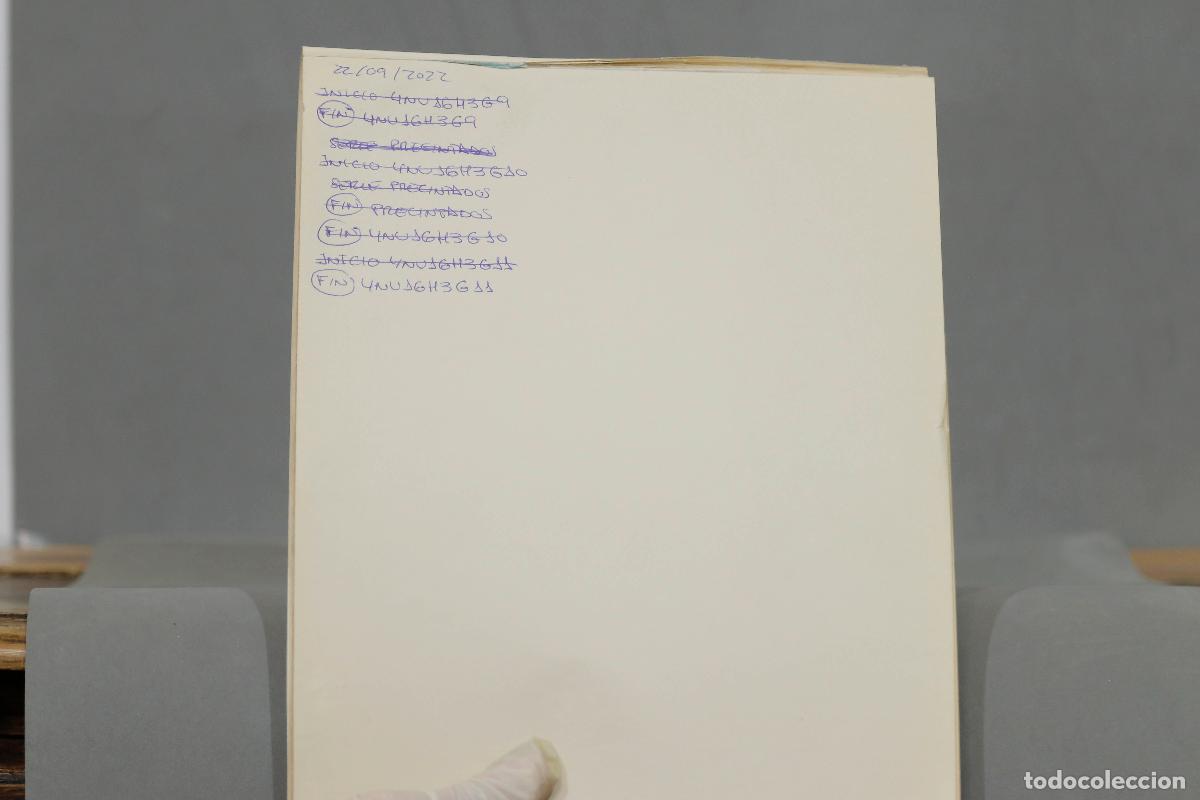 22/09/2022
INICIO 4NU16H3G9
FIN 4NU16H3G9
SERIE PRECINTADOS
INICIO 4NU16H3G10
SERIE PRECINTADOS
FIN PRECINTADOS
FIN 4NU16H3G10
INICIO 4NU16H3G11
FIN 4NU16H3G11
todocoleccion